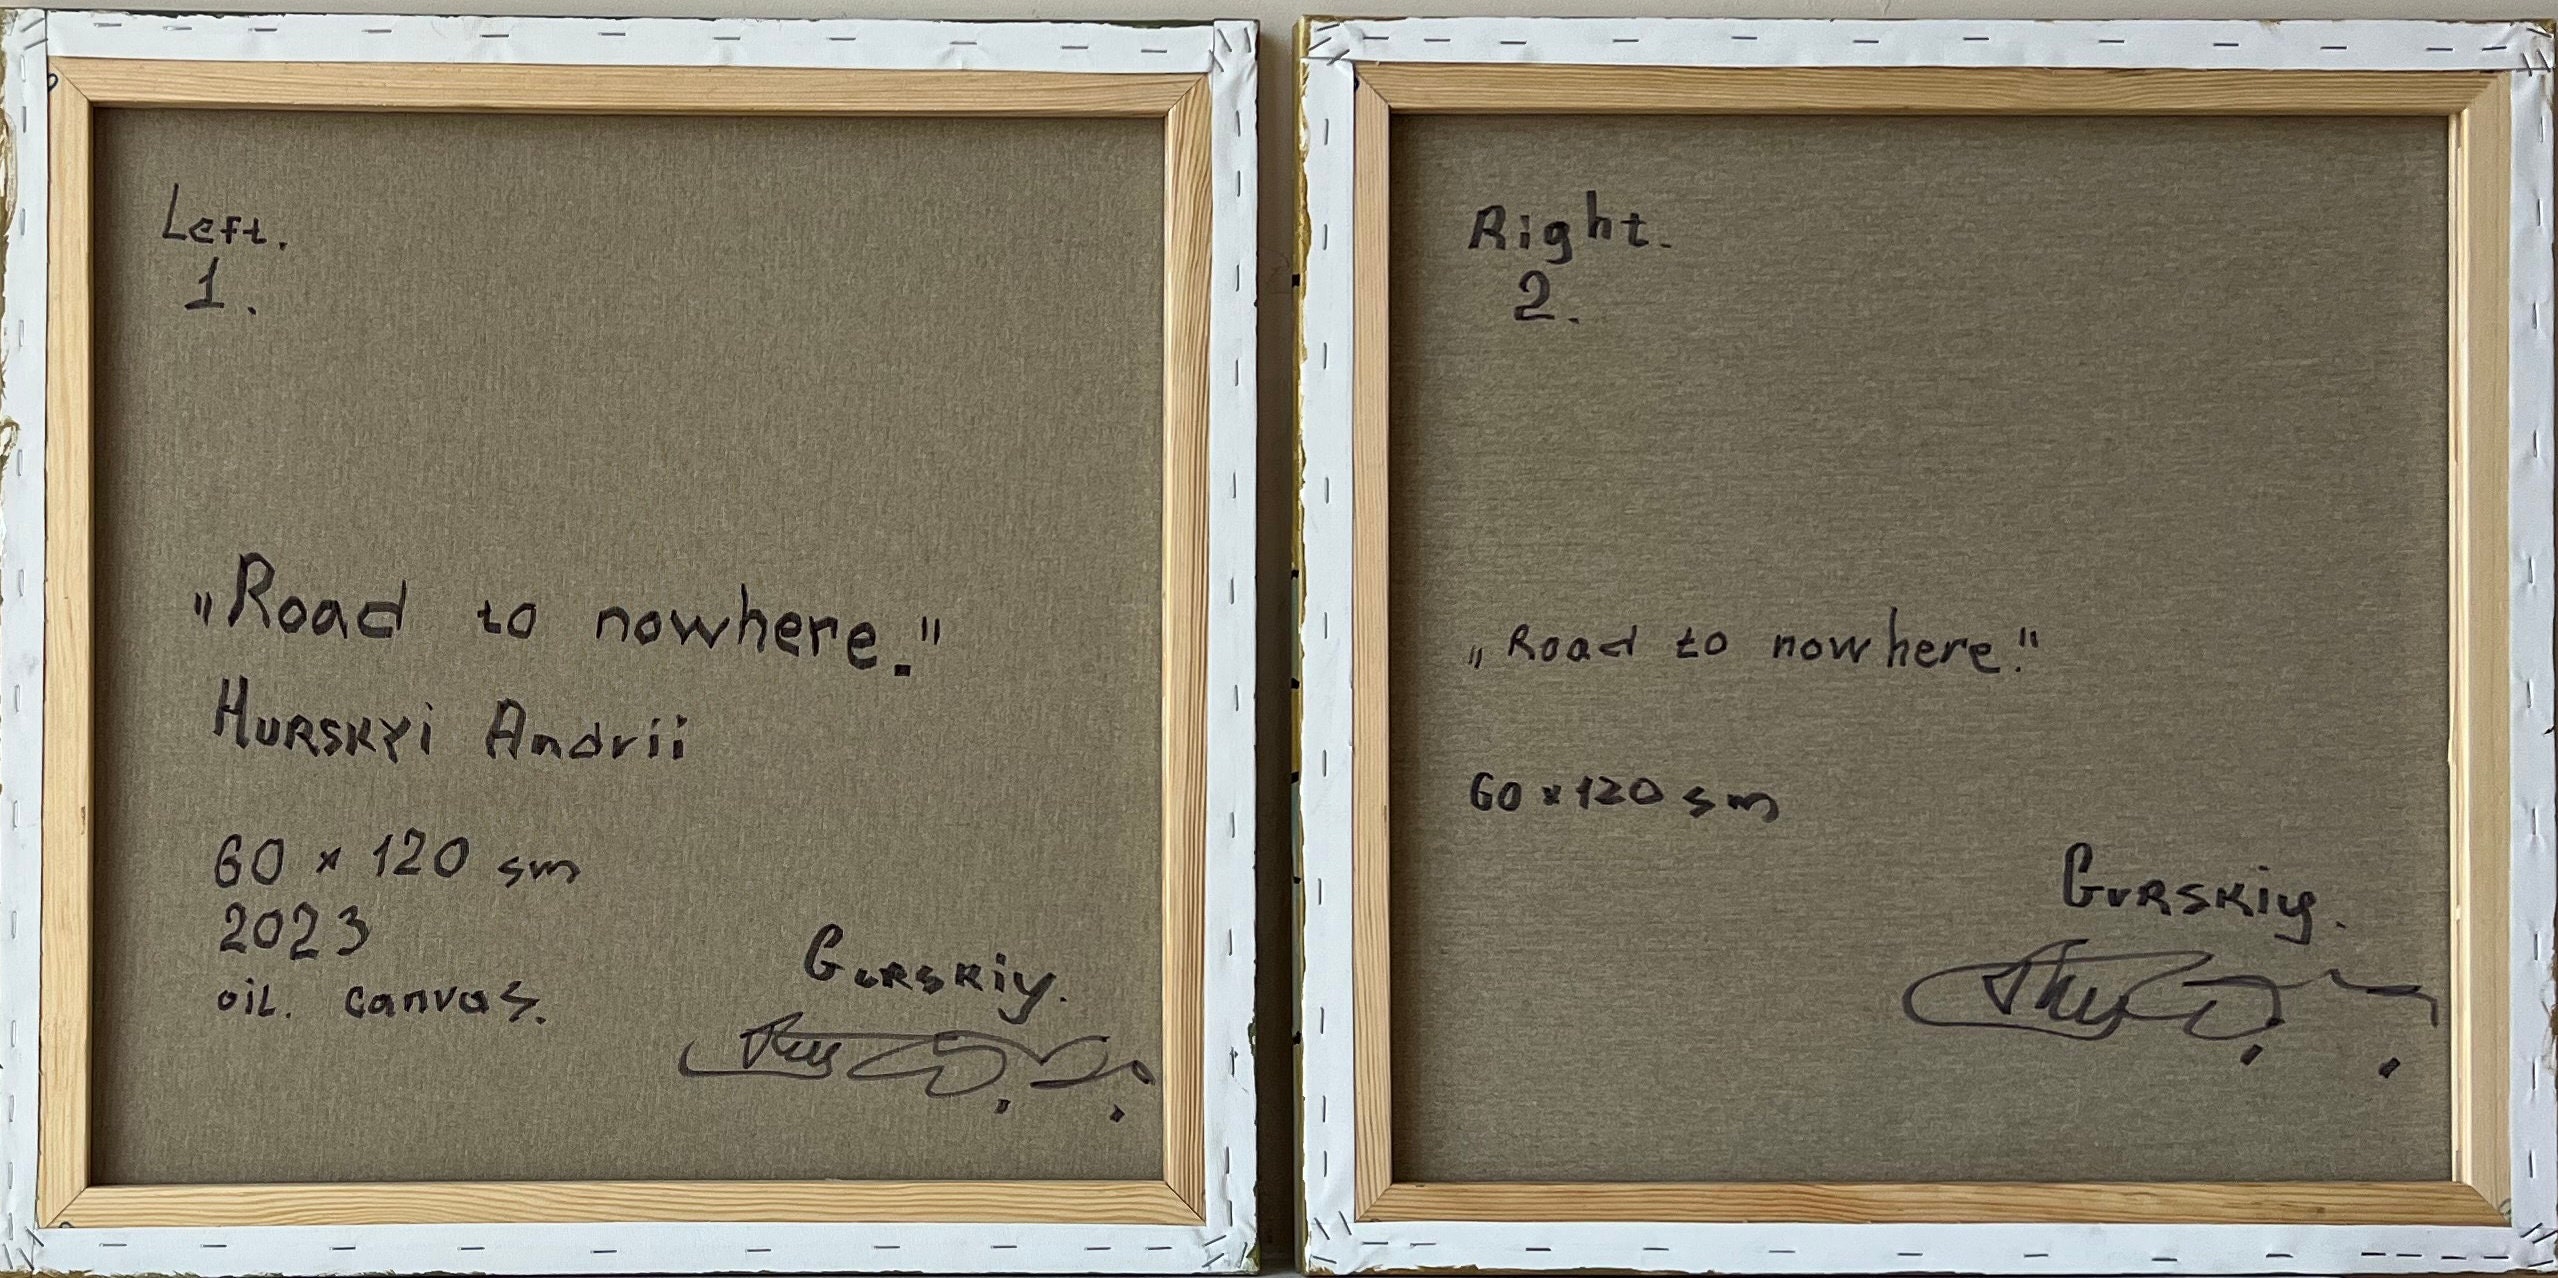 Left.
1.
„Road to nowhere."
Hurskyi Andrii
60 x 120 sm
2023
oil. canvas.
Gurskiy.
Right.
2.
„Road to nowhere."
60 x 120 sm
Gurskiy.